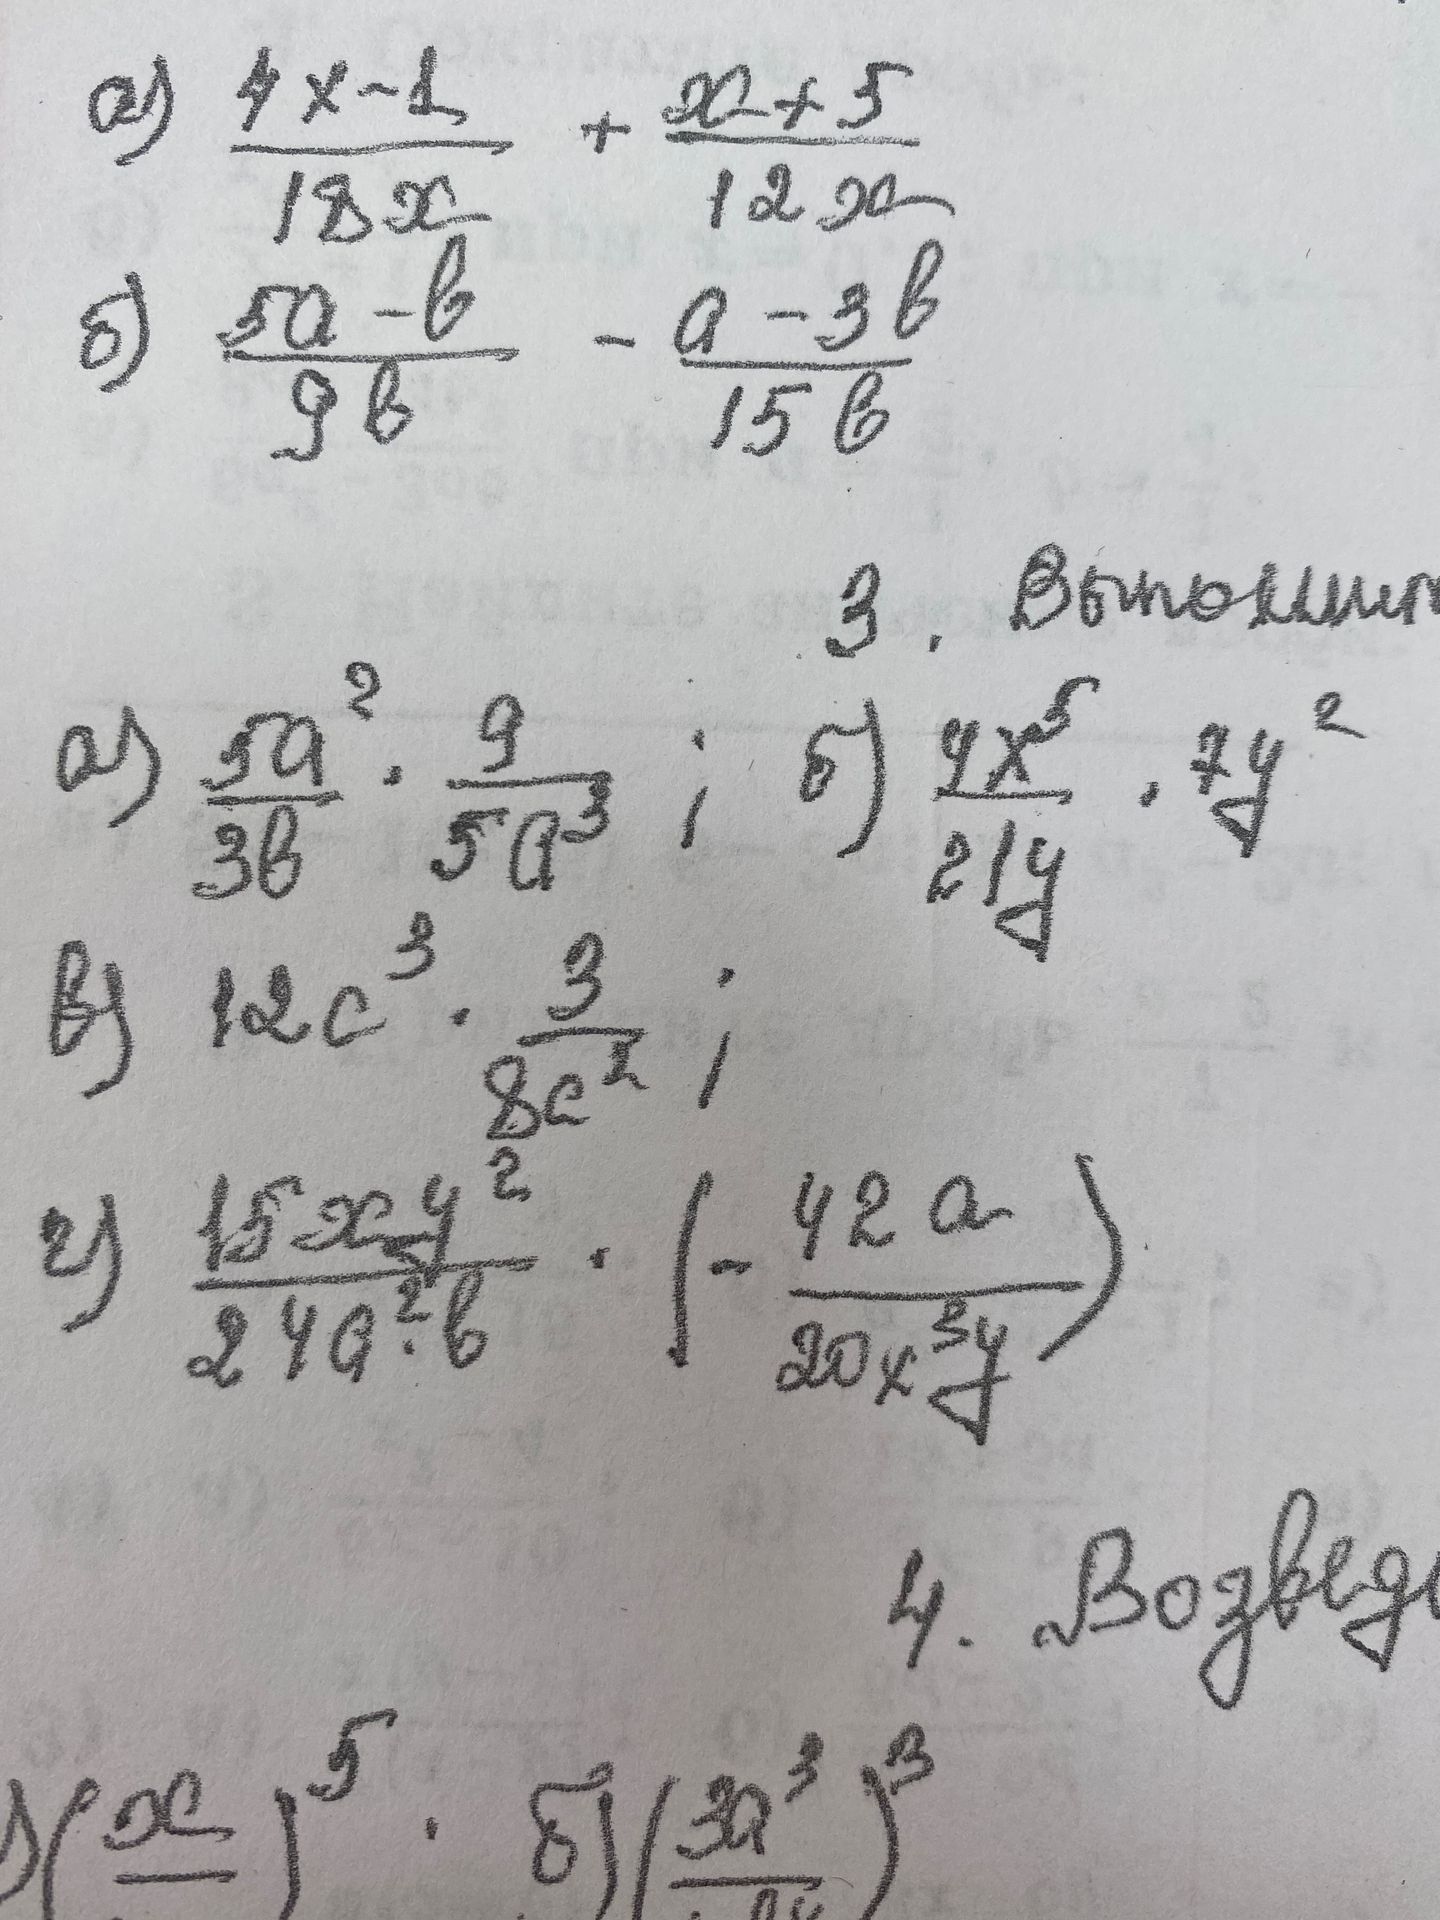 а) (4x-1)/(18x) + (x+5)/(12x)
б) (5a-b)/(9b) - (a-3b)/(15b)
3. Выполнит
а) (5a²)/(3b) · 9/(5a³) ; б) (4x⁵)/(21y) · 7y²
в) 12c³ · 3/(8c²) ;
г) (15xy²)/(24a²·b) · (- (42a)/(20x³y))
4. Возведи
) (x/ )⁵ . б) (3a³/ )³